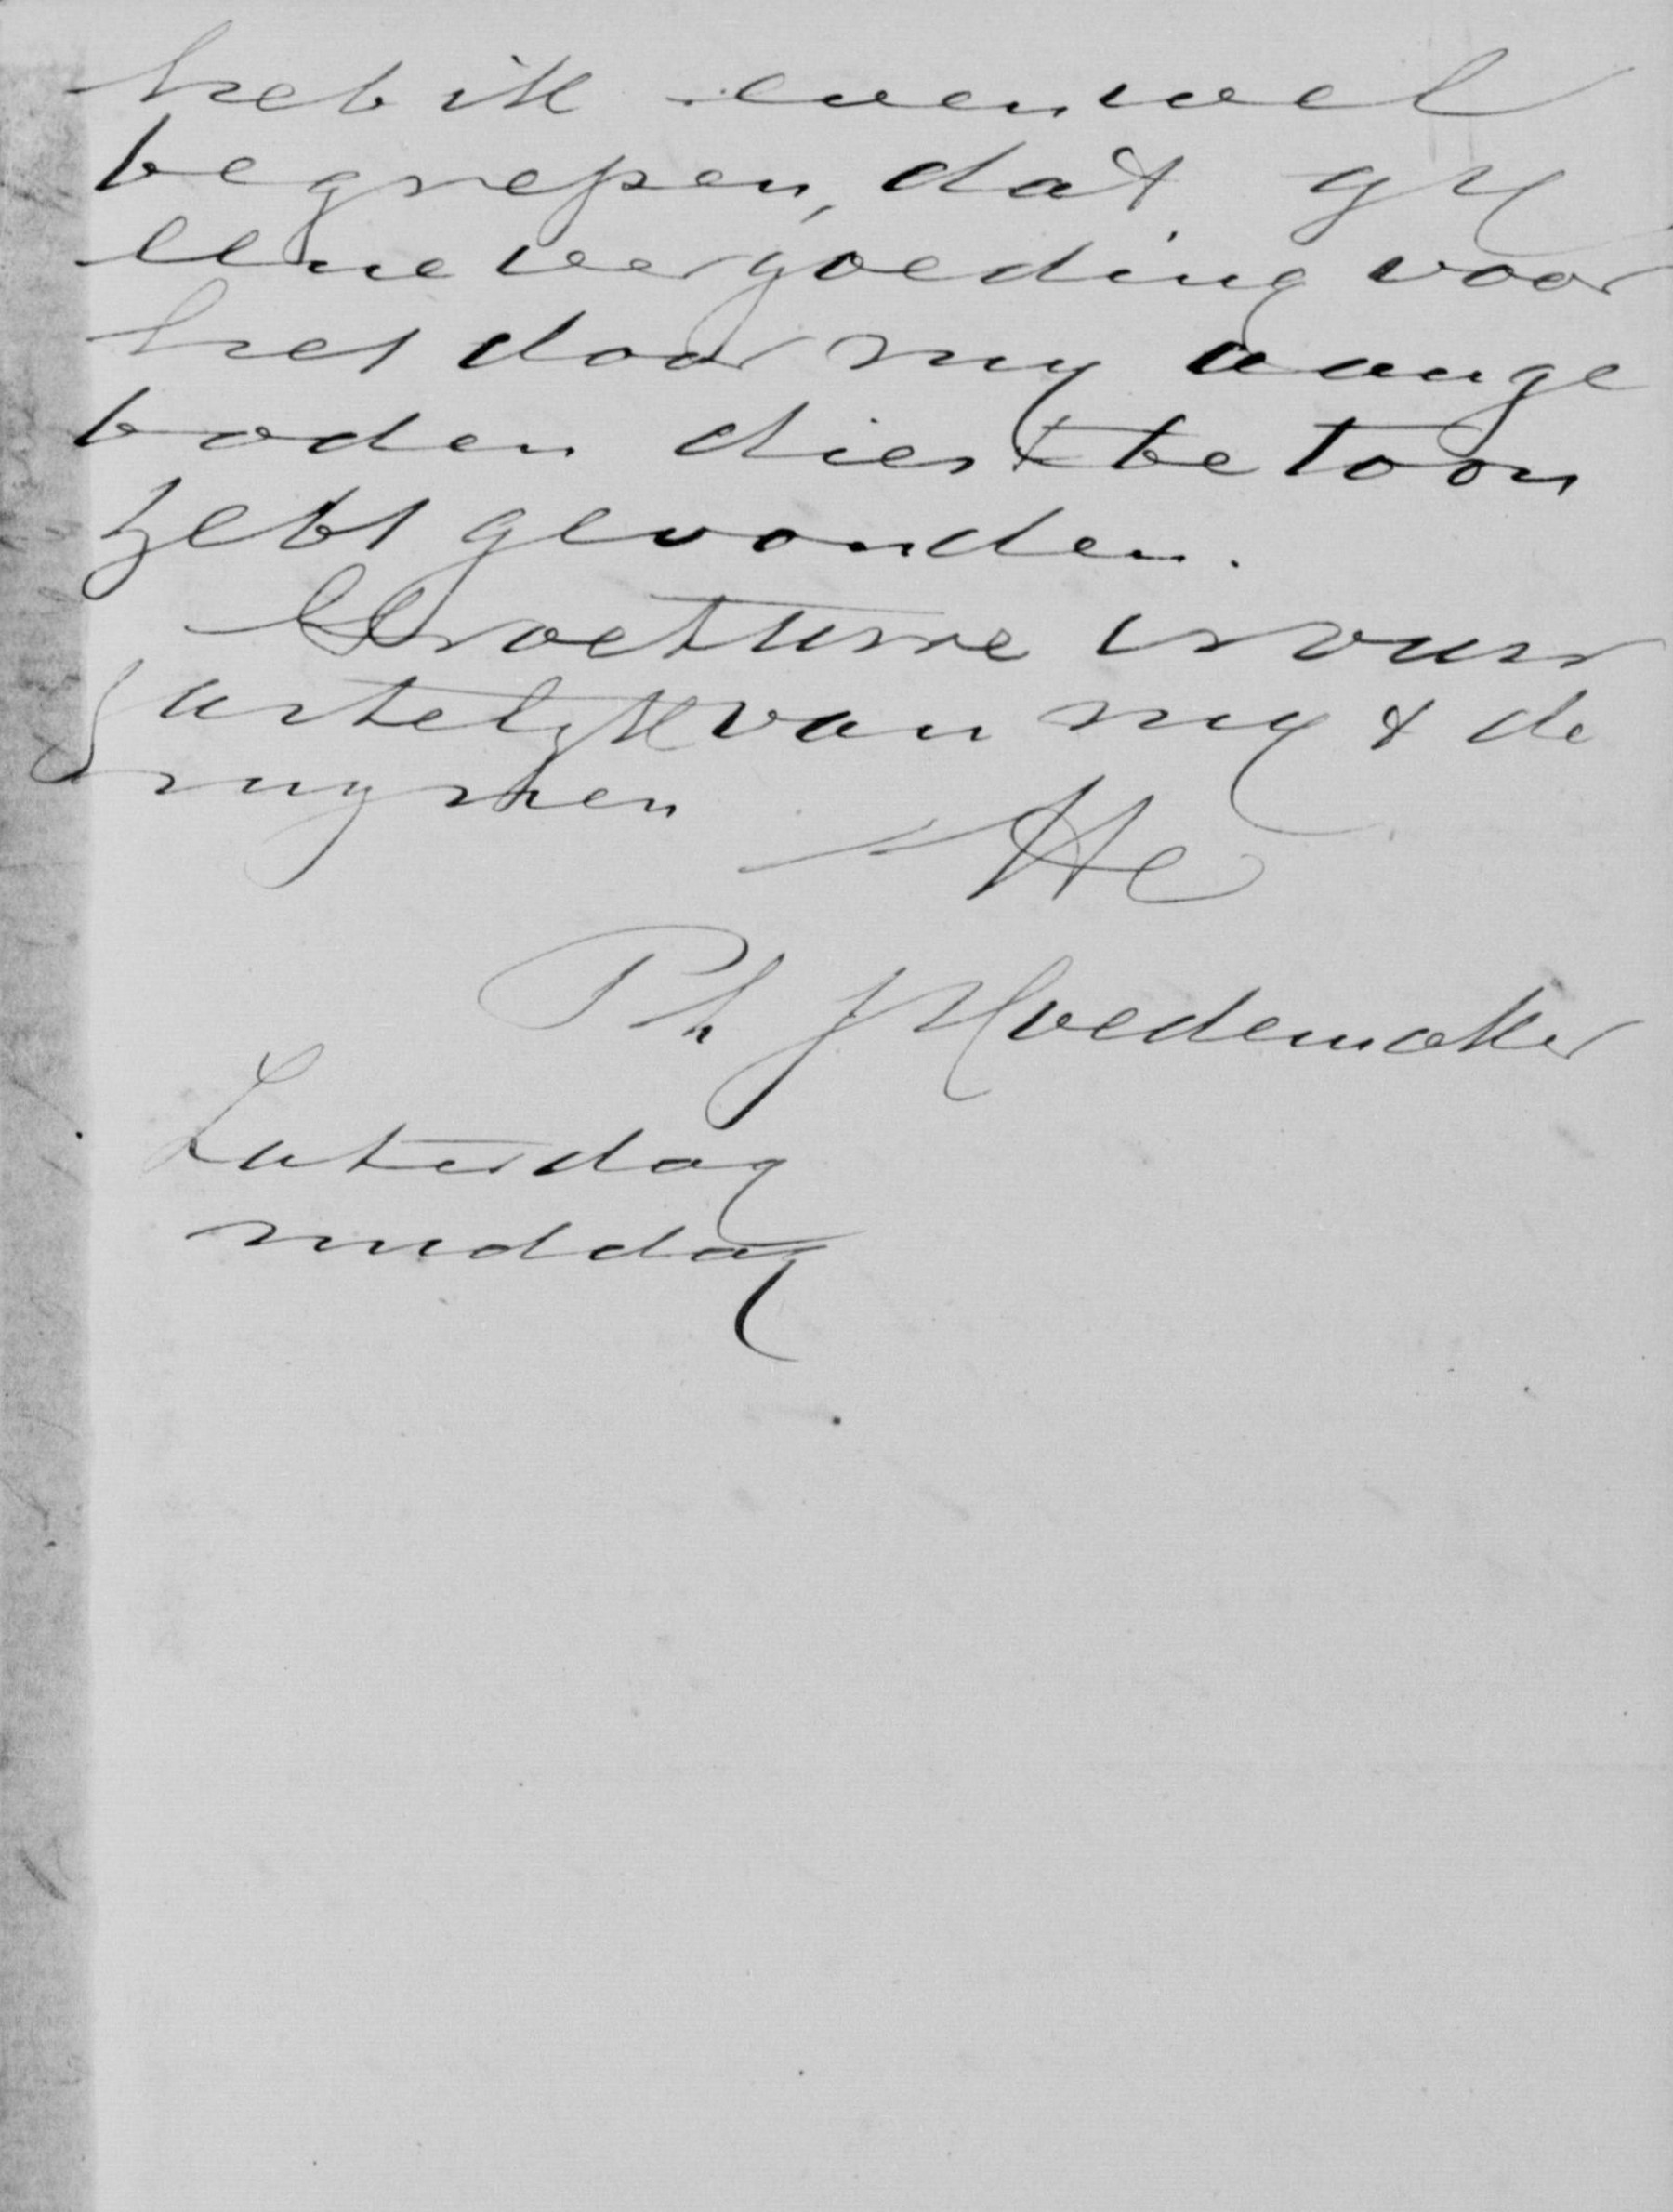 heb ik evenwel
begrepen, dat gy
eene vergoeding voor
het door my aange
boden dienstbetoon
hebt gevonden.
Groet uwe vrouw
hartelyk van my & de
mynen
tt
Ph J Hoedemaker
Zaterdag
middag